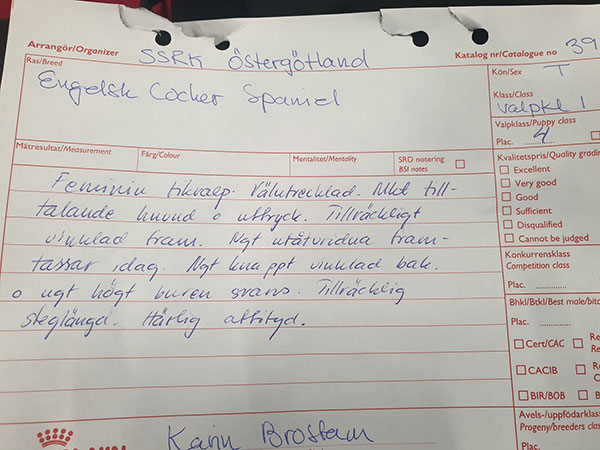 Arrangör/Organizer SSRK Östergötland Katalog nr/Catalogue no 39
Ras/Breed
Engelsk Cocker Spaniel
Kön/Sex T
Klass/Class
valpkl 1
Valpklass/Puppy class
Plac. 4
Mätresultat/Measurement Färg/Colour Mentalitet/Mentality SRD notering
BSI notes
Kvalitetspris/Quality grading
Excellent
Very good
Good
Sufficient
Disqualified
Cannot be judged
Feminin tikvalp. Välutvecklad. Mkt till-
talande huvud o uttryck. Tillräckligt
vinklad fram. Ngt utåtvridna fram-
tassar idag. Ngt knappt vinklad bak.
o ngt högt buren svans. Tillräcklig
steglängd. Härlig attityd.
Konkurrensklass
Competition class
Plac.
Bhkl/Btkl/Best male/bitc
Plac.
Cert/CAC
CACIB
BIR/BOB
Avels-/uppfödarklass
Progeny/breeders clas
Plac.
Karin Brostam